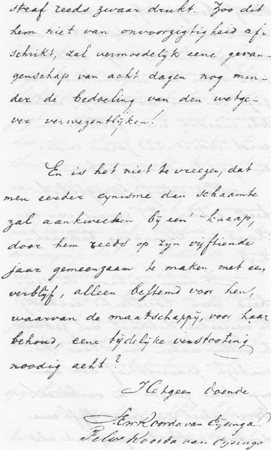 straf reeds zwaar drukt. Zoo dit
hem niet van onvoorzigtigheid af-
schrikt, zal vermoedelijk eene gevan-
genschap van acht dagen nog min-
der de bedoeling van den wetge-
ver verwezentlijken!
En is het niet te vreezen, dat
men eerder cynisme dan schaamte
zal aankweeken bij een' knaap,
door hem reeds op zijn vijftiende
jaar gemeenzaam te maken met een
verblijf, alleen bestemd voor hen,
waarvan de maatschappij, voor haar
behoud, eene tijdelijke verstooting
noodig acht?
'Hetgeen doende
Roorda van Eysinga
Roorda van Eysinga